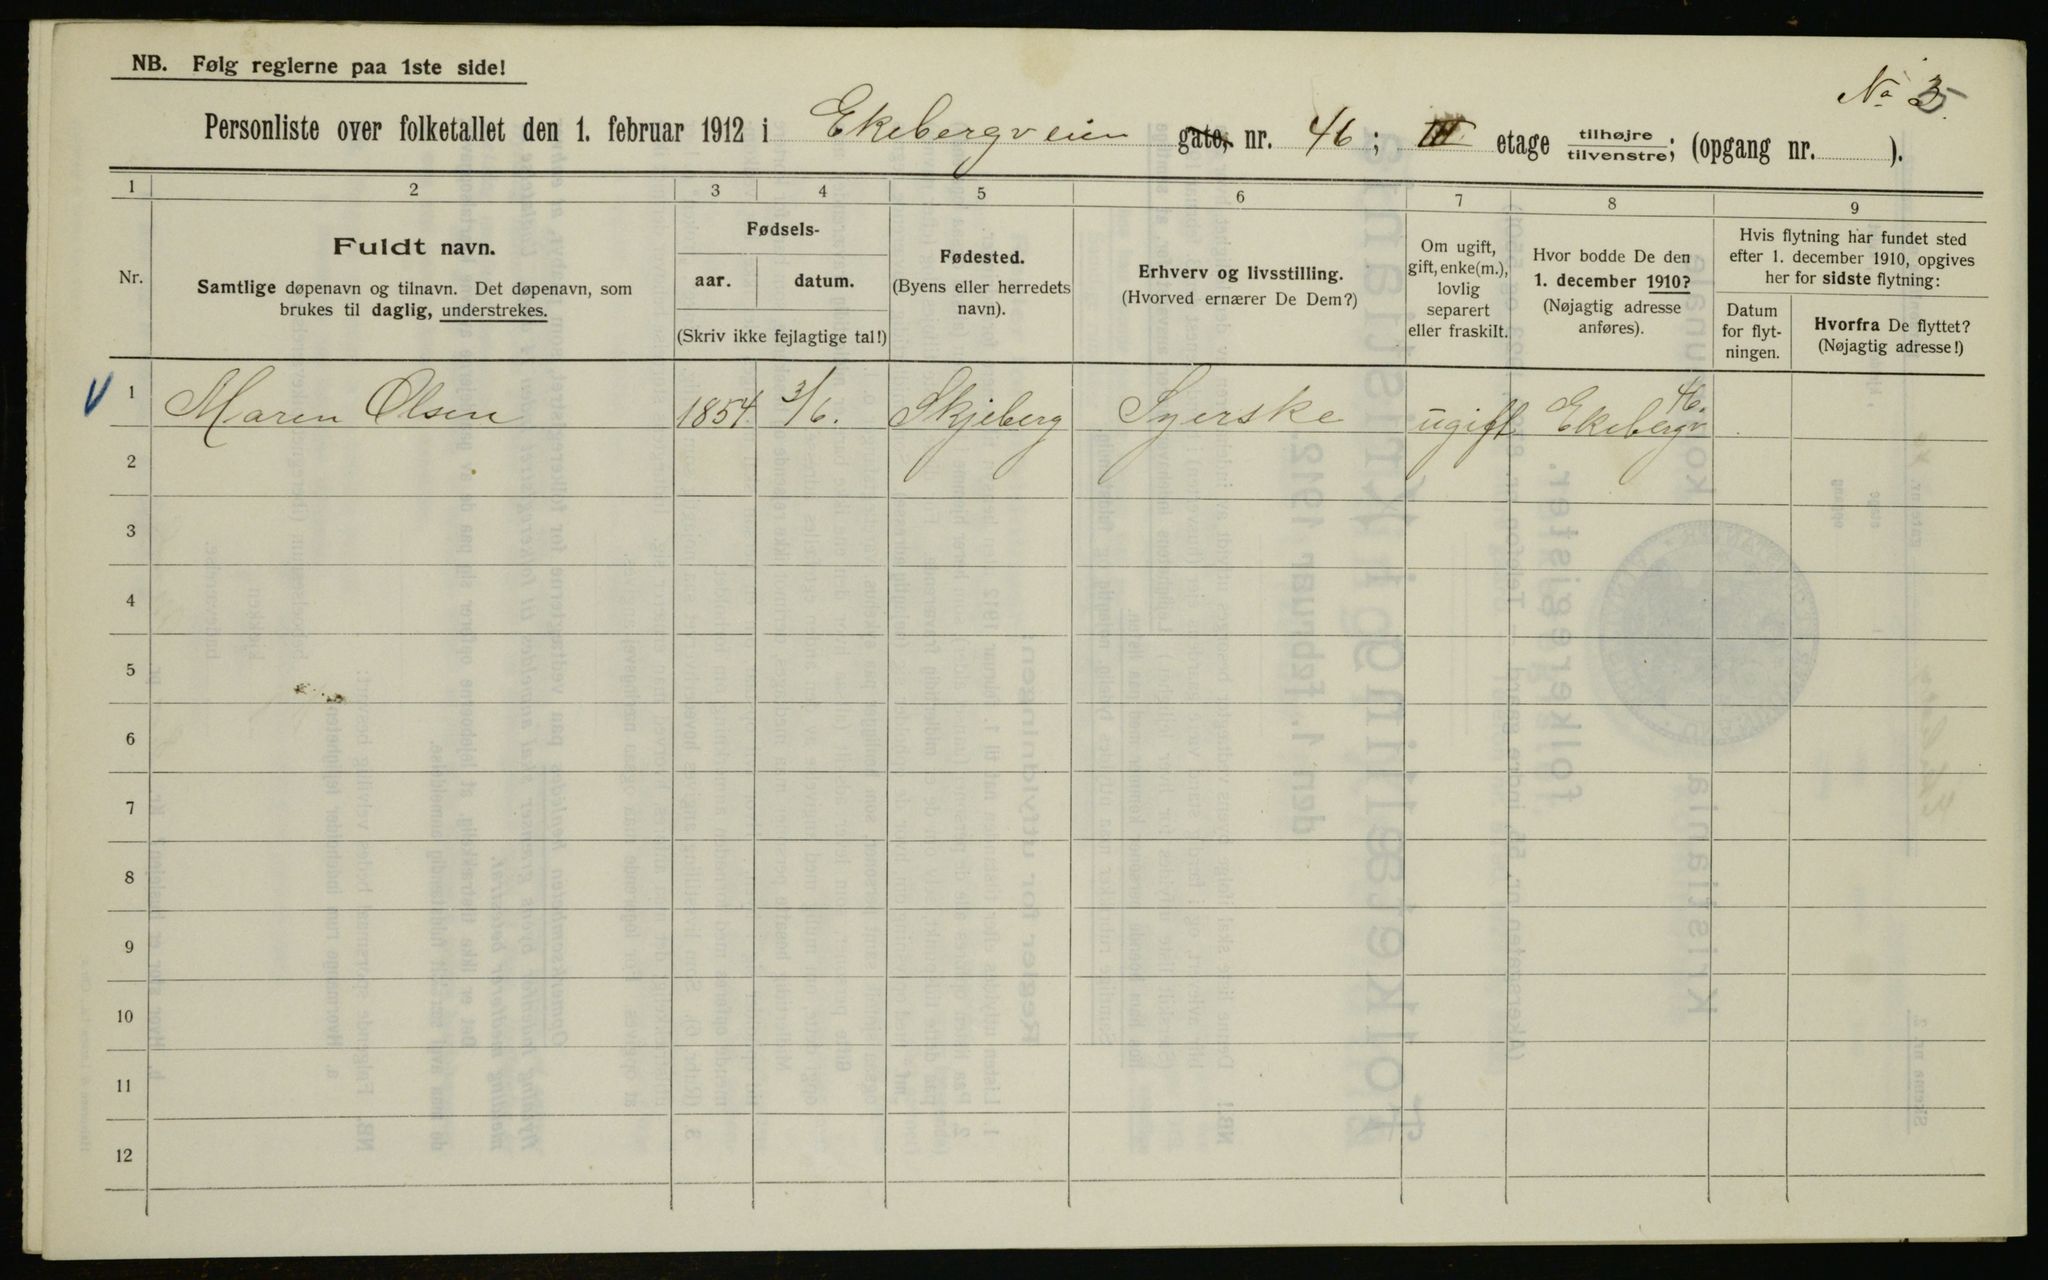 NB. Følg reglerne paa 1ste side!
No 3
5
Personliste over folketallet den 1. februar 1912 i Ekebergveien gate, nr. 46; III etage tilhøjre/tilvenstre; (opgang nr. ).
1 2 3 4 5 6 7 8 9
Nr.
Fuldt navn.
Samtlige døpenavn og tilnavn. Det døpenavn, som
brukes til daglig, understrekes.
Fødsels-
aar. datum.
(Skriv ikke fejlagtige tal!)
Fødested.
(Byens eller herredets
navn).
Erhverv og livsstilling.
(Hvorved ernærer De Dem?)
Om ugift,
gift, enke(m.),
lovlig
separert
eller fraskilt.
Hvor bodde De den
1. december 1910?
(Nøjagtig adresse
anføres).
Hvis flytning har fundet sted
efter 1. december 1910, opgives
her for sidste flytning:
Datum
for flyt-
ningen.
Hvorfra De flyttet?
(Nøjagtig adresse!)
1 Maren Olsen 1854 3/6. Skjeberg Syerske ugift Ekebergv 46.
2
3
4
5
6
7
8
9
10
11
12